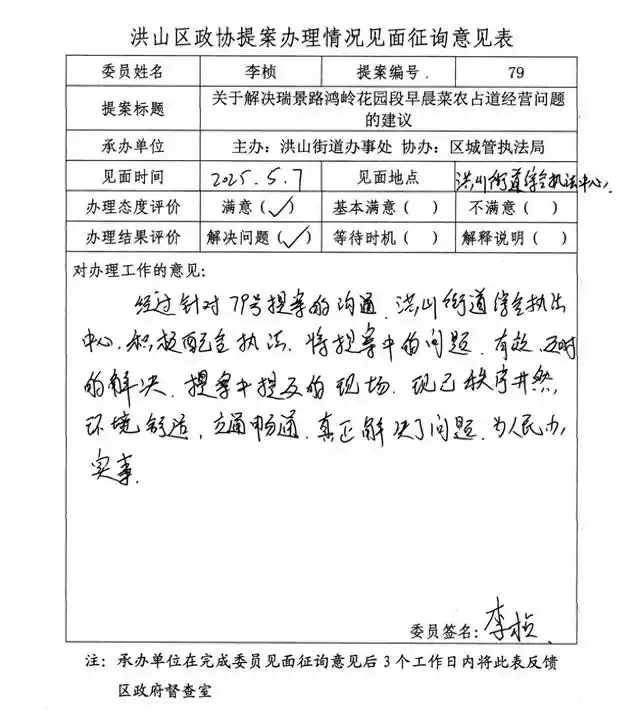 洪山区政协提案办理情况见面征询意见表
委员姓名 李桢 提案编号. 79
提案标题 关于解决瑞景路鸿岭花园段早晨菜农占道经营问题
的建议
承办单位 主办：洪山街道办事处 协办：区城管执法局
见面时间 2025.5.7 见面地点 洪山街道综合执法中心.
办理态度评价 满意（✓） 基本满意（ ） 不满意（ ）
办理结果评价 解决问题（✓） 等待时机（ ） 解释说明（ ）
对办理工作的意见：
经过针对79号提案的沟通，洪山街道综合执法
中心，积极配合执法，将提案中的问题，有效，及时
的解决，提案中提及的现场，现已秩序井然，
环境舒适，交通畅通，真正解决了问题，为人民办
实事.
委员签名：李桢
注：承办单位在完成委员见面征询意见后3个工作日内将此表反馈
区政府督查室